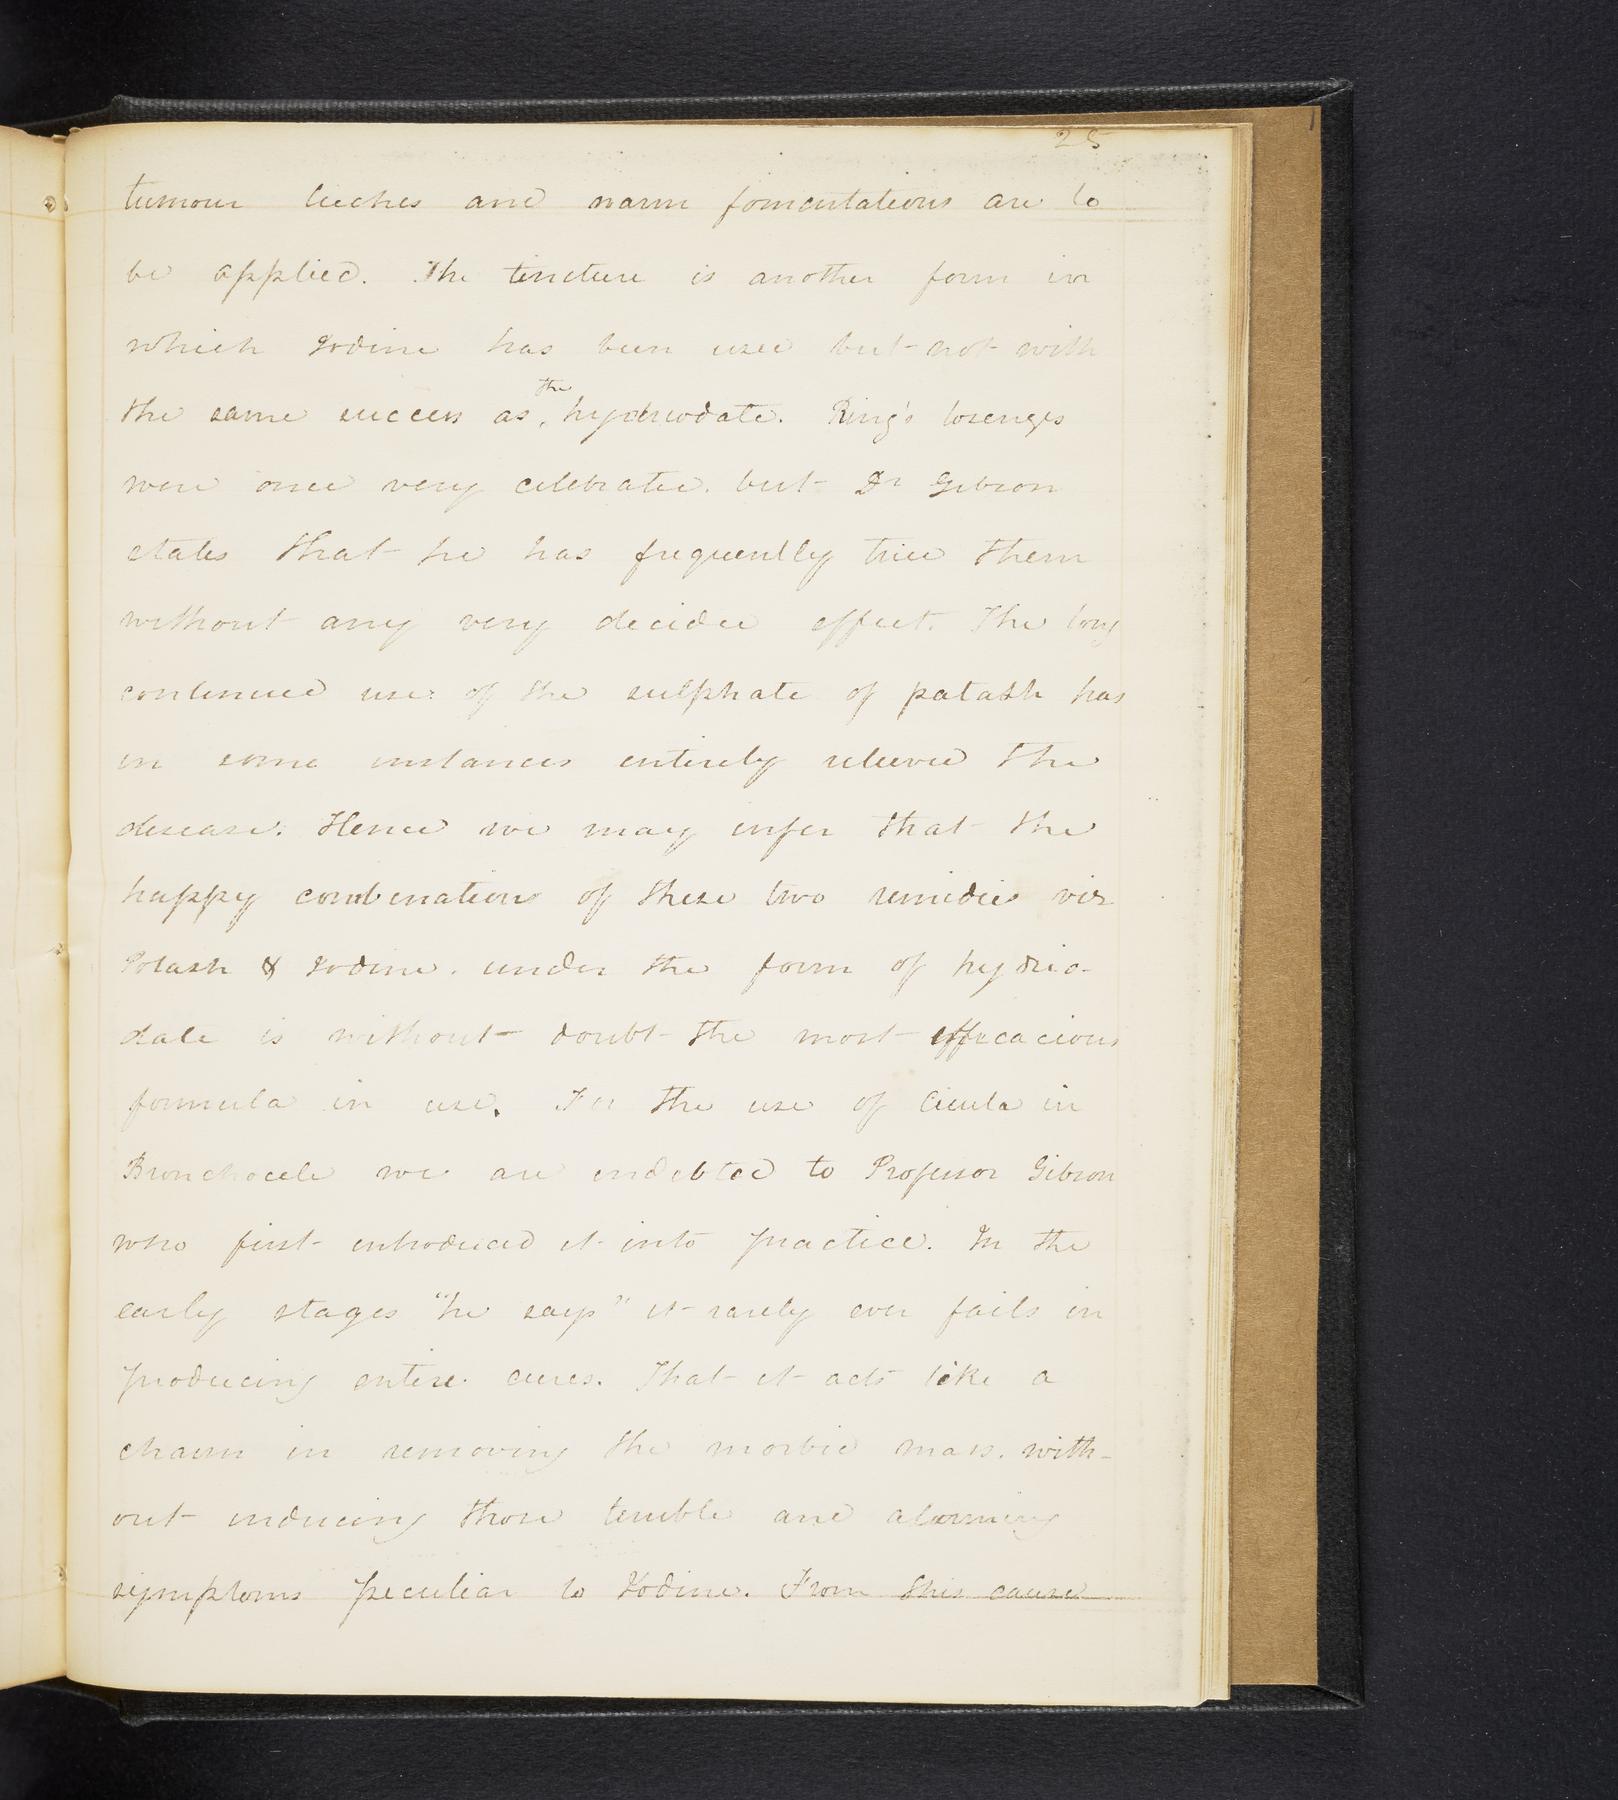 25
tumour leeches and warm fomentations are to
be applied. The tincture is another form in
which Iodine has been used but not with
the
the same success as, hydriodate. Ring's losenges
were once very celebrated. but Dr Gibson
states that he has frequently tried them
without any very decided effect. The long
continued use of the sulphate of patash has
in some instances entirely releived the
disease. Hence we may infer that the
happy combination of these two remidies viz
Potash & Iodine. under the form of hydrio-
date is without doubt the most efficacious
formula in use. For the use of Cicuta in
Bronchocele we are endebted to Professor Gibson
who first introduced it into practice. In the
early stages "he says" it rarely ever fails in
producing entire cures. That it acts like a
charm in removing the morbid mass. with-
out inducing those terrible and alarming
symptoms peculiar to Iodine. From this cause